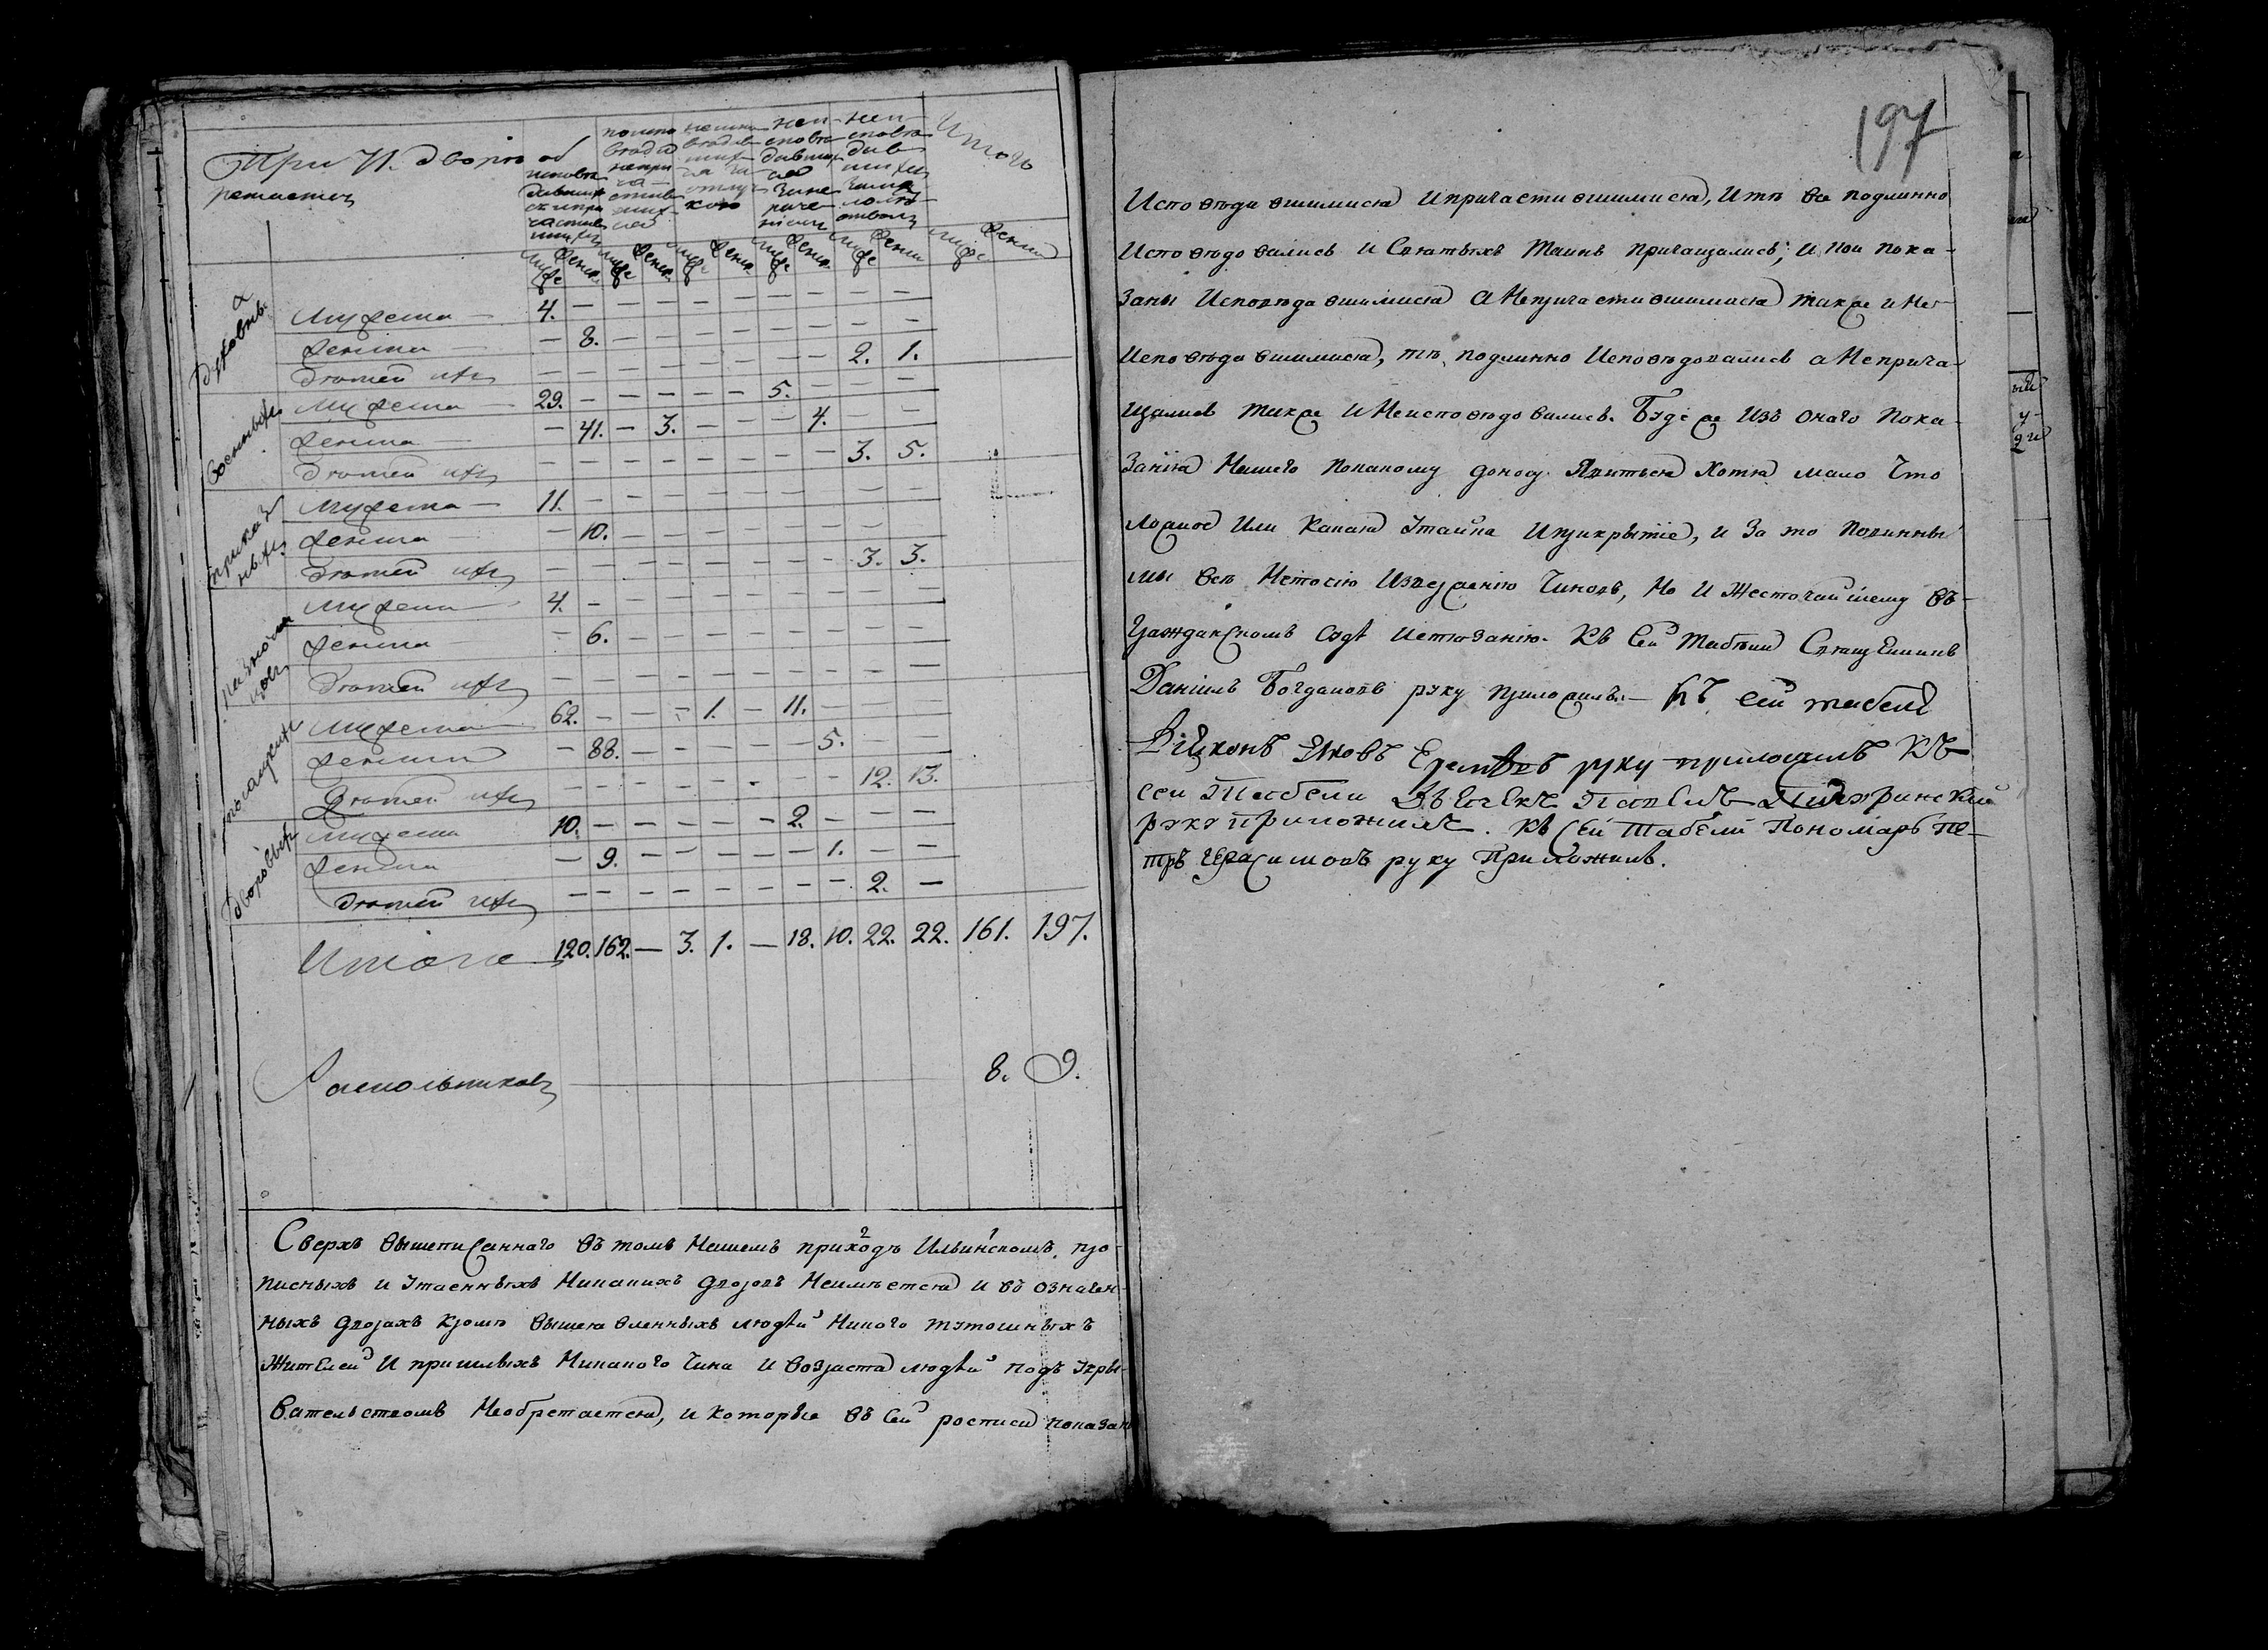 При 71. дворѣ об
ретаетца
исповѣ
давшихся
и при
частив
шихся
по испо
вѣда
непри
ча
стив
шихся
не испо
вѣдав
ших
ся за
отлуч
кою
неис
повѣ
давших
ся
за не
раче
ніем
неис
повѣ
дав
шихся
за ма
лолѣ
тством
Итого
Муже Женск. Муже Женск. Муже Женск. Муже Женск. Муже Женск Муже Женск
Духовных
Мужеска 4. — — — — — — — — —
Женска — 8. — — — — — — — —
Дѣтей ихъ — — — — — — — — 2. 1.
Военных
Мужеска 29. — — — — — 5. — — —
Женска — 41. — 3. — — — 4. — —
Дѣтей ихъ — — — — — — — — 3. 5.
Приказных
Мужеска 11. — — — — — — — — —
Женска — 10. — — — — — — — —
Дѣтей ихъ — — — — — — — — 3. 3.
Разночинцов
Мужеска 4. — — — — — — — — —
Женска — 6. — — — — — — — —
Дѣтей ихъ — — — — — — — — — —
Посацких
Мужеска 62. — — — 1. — 11. — — —
Женска — 88. — — — — — 5. — —
Дѣтей ихъ — — — — — — — — 12. 13.
Дворовых
Мужеска 10. — — — — — 2. — — —
Женска — 9. — — — — — 1. — —
Дѣтей ихъ — — — — — — — — 2. —
Итого 120. 162. — 3. 1. — 18. 10. 22. 22. 161. 197.
Раскольников 8. 9.
Сверхъ вышеписаннаго въ томъ нашемъ приходѣ Ильинскомъ, про-
писныхъ и утаенныхъ никакихъ дворовъ неимѣется и въ означен-
ныхъ дворахъ кромѣ вышеявленныхъ людѣй никого тутошныхъ
жителей и пришлыхъ никакого чина и возраста людѣй подъ укры-
вательствомъ необретается, и которыя въ сей росписи показан
197
Исповѣдавшимися и причастившимися, и тѣ все подлинно
исповѣдовались и Святыхъ Таинъ причащались, и кои пока-
заны исповѣдавшимися а непричастившимися также и не-
исповѣдавшимися, тѣ, подлинно исповѣдовались а неприча-
щались также и неисповѣдовались. Будеже изъ онаго пока-
занія нашего покакому доносу явиться хотя мало что
ложное или какая утайка и прикрытіе, и за то повинны
мы всѣ нетокмо извержению чиновъ, но и жесточайшему въ-
гражданскомъ судѣ истязанію. Къ сей табели Священникъ
Даніилъ Богдановъ руку приложилъ. — Къ сей табели
Діяконъ Яковъ руку приложилъ Къ
сей Табели Дьячекъ Павелъ
руку приложилъ. Къ сей табели Пономарь Пе-
тръ Герасимовъ руку приложилъ.